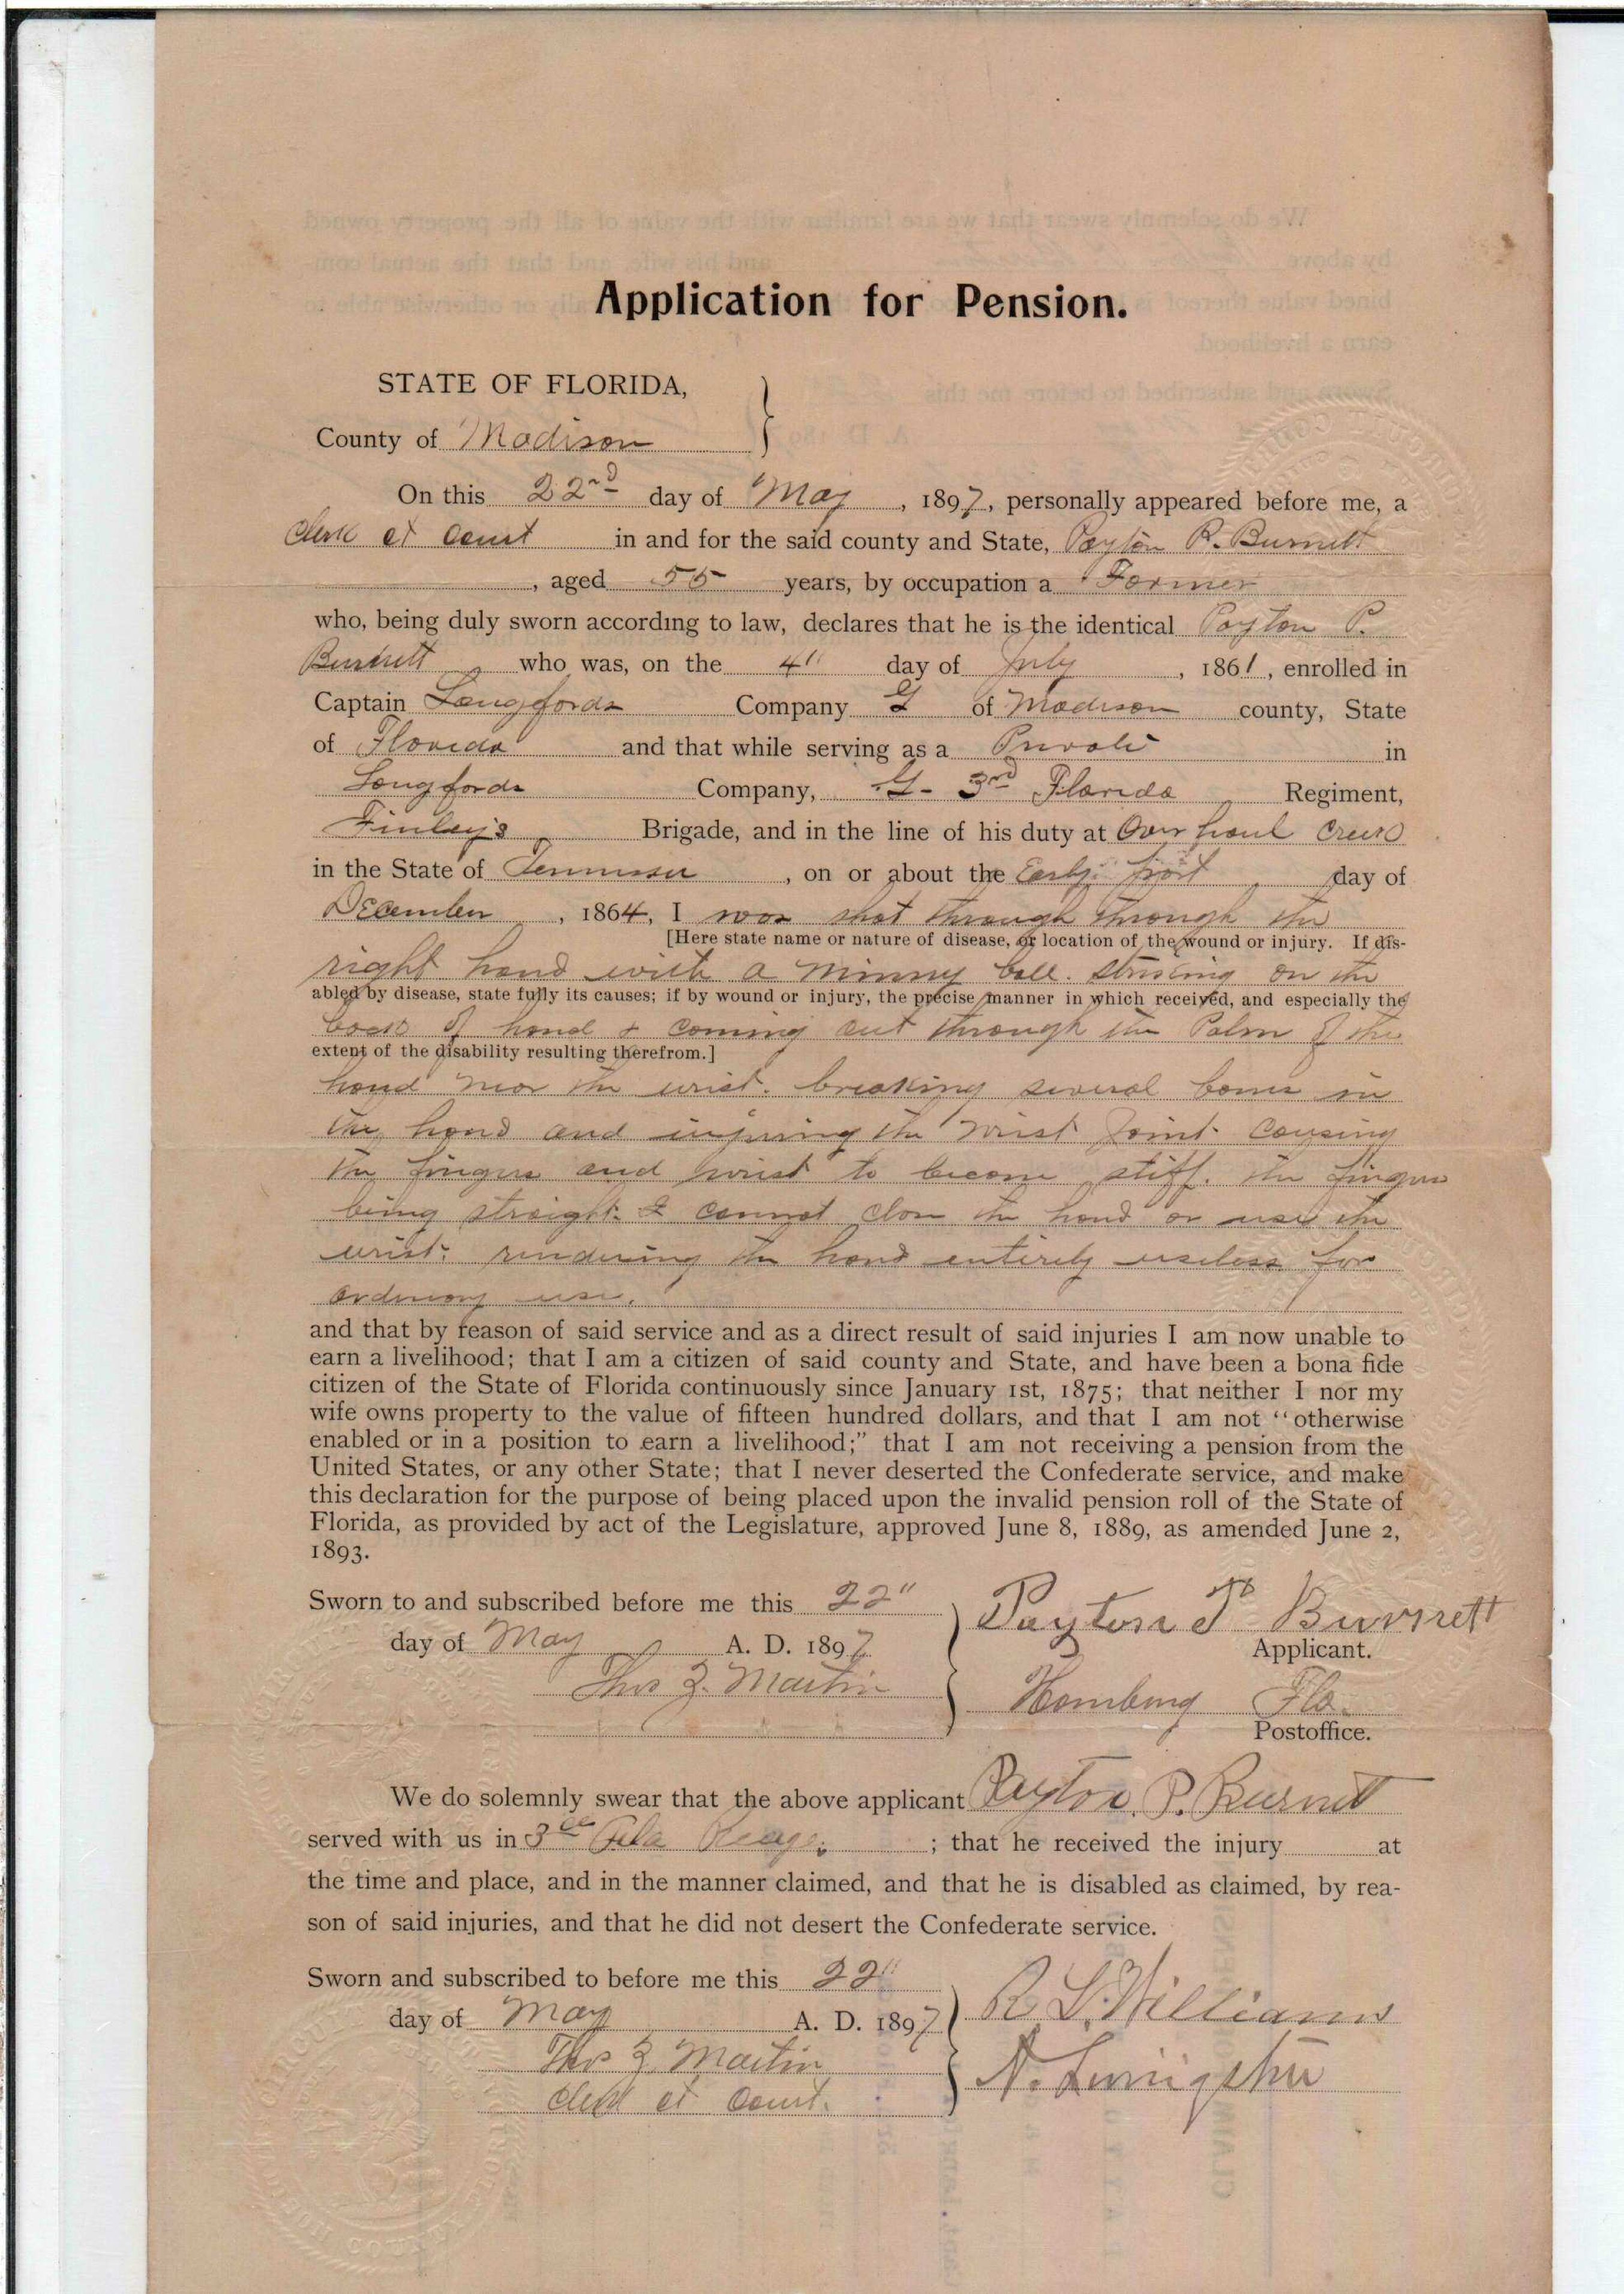 Application for Pension.
STATE OF FLORIDA,
County of Madison
On this 22nd day of May, 1897, personally appeared before me, a
Clerk ct Court in and for the said county and State, Payton P. Burnett
, aged 55 years, by occupation a Farmer
who, being duly sworn according to law, declares that he is the identical Payton P.
Burnett who was, on the 4" day of July, 1861, enrolled in
Captain Langfords Company G of Madison county, State
of Florida and that while serving as a Private in
Langfords Company, G- 3rd Florida Regiment,
Finley's Brigade, and in the line of his duty at Over haul Creek
in the State of Tennessee, on or about the Early part day of
December, 1864, I was shot through through the
[Here state name or nature of disease, or location of the wound or injury. If dis-
right hand with a minny ball. striking on the
abled by disease, state fully its causes; if by wound or injury, the precise manner in which received, and especially the
back of hand & coming out through the Palm of the
extent of the disability resulting therefrom.]
hand near the wrist. breaking several bones in
the hand and injuring the wrist joint causing
the fingers and wrist to become stiff. the fingers
being straight. I cannot close the hand or use the
wrist. rendering the hand entirely useless for
ordinary use.
and that by reason of said service and as a direct result of said injuries I am now unable to
earn a livelihood; that I am a citizen of said county and State, and have been a bona fide
citizen of the State of Florida continuously since January 1st, 1875; that neither I nor my
wife owns property to the value of fifteen hundred dollars, and that I am not "otherwise
enabled or in a position to earn a livelihood;" that I am not receiving a pension from the
United States, or any other State; that I never deserted the Confederate service, and make
this declaration for the purpose of being placed upon the invalid pension roll of the State of
Florida, as provided by act of the Legislature, approved June 8, 1889, as amended June 2,
1893.
Sworn to and subscribed before me this 22"
day of May A. D. 1897
Thos Z. Martin
Payton P Burnett
Applicant.
Hamburg Fla.
Postoffice.
We do solemnly swear that the above applicant Payton. P. Burnett
served with us in 3rd Fla ; that he received the injury at
the time and place, and in the manner claimed, and that he is disabled as claimed, by rea-
son of said injuries, and that he did not desert the Confederate service.
Sworn and subscribed to before me this 22"
day of May A. D. 1897
Thos Z Martin
Clerk ct Court.
R L. Williams
N. Livingston